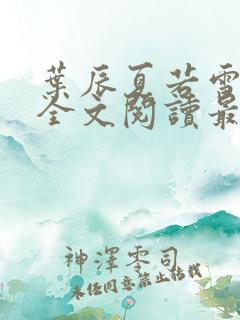 葉辰夏若雪
全文閱讀最
神澤零司
未經同意禁止轉載